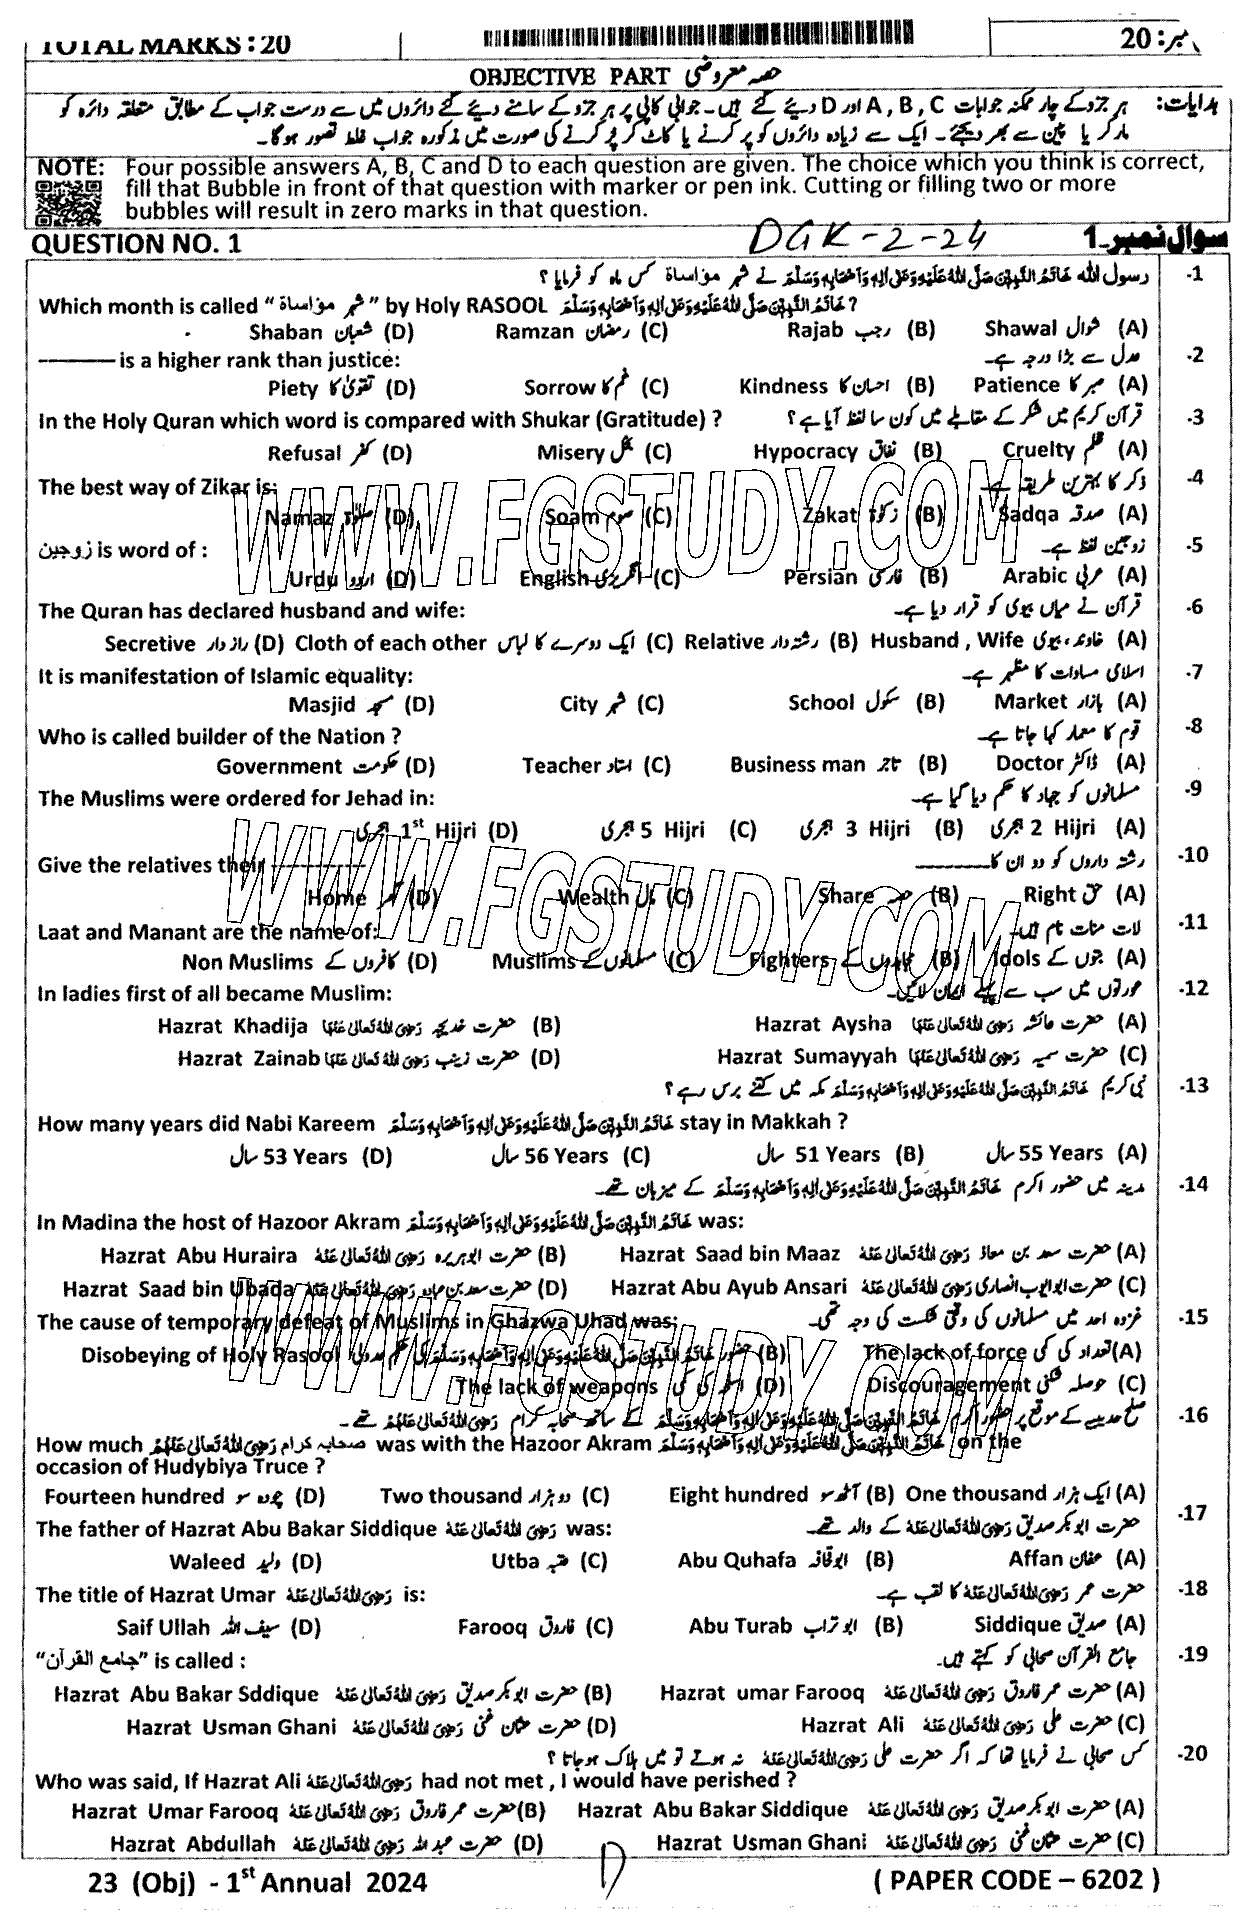 TOTAL MARKS : 20 نمبر : 20
OBJECTIVE PART حصہ معروضی
ہدایات: ہر جزو کے چار ممکنہ جوابات A, B, C اور D دیئے گئے ہیں۔ جوابی کاپی پر ہر جزو کے سامنے دیئے گئے دائروں میں سے درست جواب کے مطابق متعلقہ دائرہ کو
مارکر یا پین سے بھر دیجئے۔ ایک سے زیادہ دائروں کو پر کرنے یا کاٹ کر پر کرنے کی صورت میں مذکورہ جواب غلط تصور ہو گا۔
NOTE: Four possible answers A, B, C and D to each question are given. The choice which you think is correct,
fill that Bubble in front of that question with marker or pen ink. Cutting or filling two or more
bubbles will result in zero marks in that question.
QUESTION NO. 1 DGK-2-24 سوال نمبر۔1
1- رسول اللہ خَاتَمُ النَّبِیّٖنَ صَلَّی اللہُ عَلَیْہِ وَعَلٰی اٰلِہٖ وَاَصْحَابِہٖ وَسَلَّمَ نے شہر مؤاساۃ کس ماہ کو فرمایا ؟
Which month is called “ شہر مؤاساۃ ” by Holy RASOOL خَاتَمُ النَّبِیّٖنَ صَلَّی اللہُ عَلَیْہِ وَعَلٰی اٰلِہٖ وَاَصْحَابِہٖ وَسَلَّمَ ?
(A) شوال Shawal (B) رجب Rajab (C) رمضان Ramzan (D) شعبان Shaban
2- عدل سے بڑا درجہ ہے۔
———— is a higher rank than justice:
(A) صبر کا Patience (B) احسان کا Kindness (C) غم کا Sorrow (D) تقویٰ کا Piety
3- قرآن کریم میں شکر کے مقابلے میں کون سا لفظ آیا ہے؟ In the Holy Quran which word is compared with Shukar (Gratitude) ?
(A) ظلم Cruelty (B) نفاق Hypocracy (C) بخل Misery (D) کفر Refusal
4- ذکر کا بہترین طریقہ ہے۔ The best way of Zikar is:
(A) صدقہ Sadqa (B) زکوٰۃ Zakat (C) صوم Soam (D) صلوٰۃ Namaz
5- زوجین لفظ ہے۔ زوجین is word of :
(A) عربی Arabic (B) فارسی Persian (C) انگریزی English (D) اردو Urdu
6- قرآن نے میاں بیوی کو قرار دیا ہے۔ The Quran has declared husband and wife:
(A) خاوند، بیوی Husband , Wife (B) رشتہ دار Relative (C) ایک دوسرے کا لباس Cloth of each other (D) راز دار Secretive
7- اسلامی مساوات کا مظہر ہے۔ It is manifestation of Islamic equality:
(A) بازار Market (B) سکول School (C) شہر City (D) مسجد Masjid
8- قوم کا معمار کہا جاتا ہے۔ Who is called builder of the Nation ?
(A) ڈاکٹر Doctor (B) تاجر Business man (C) استاد Teacher (D) حکومت Government
9- مسلمانوں کو جہاد کا حکم دیا گیا ہے۔ The Muslims were ordered for Jehad in:
(A) 2 ہجری Hijri (B) 3 ہجری Hijri (C) 5 ہجری Hijri (D) 1st ہجری Hijri
10- رشتہ داروں کو دو ان کا———— Give the relatives their ————
(A) حق Right (B) حصہ Share (C) مال Wealth (D) گھر Home
11- لات منات نام ہیں۔ Laat and Manant are the name of:
(A) بتوں کے Idols (B) مجاہدوں کے Fighters (C) مسلمانوں کے Muslims (D) کافروں کے Non Muslims
12- عورتوں میں سب سے پہلے ایمان لائیں۔ In ladies first of all became Muslim:
(A) حضرت عائشہ رَضِیَ اللہُ تَعَالٰی عَنْہَا Hazrat Aysha (B) حضرت خدیجہ رَضِیَ اللہُ تَعَالٰی عَنْہَا Hazrat Khadija
(C) حضرت سمیہ رَضِیَ اللہُ تَعَالٰی عَنْہَا Hazrat Sumayyah (D) حضرت زینب رَضِیَ اللہُ تَعَالٰی عَنْہَا Hazrat Zainab
13- نبی کریم خَاتَمُ النَّبِیّٖنَ صَلَّی اللہُ عَلَیْہِ وَعَلٰی اٰلِہٖ وَاَصْحَابِہٖ وَسَلَّمَ مکہ میں کتنے برس رہے ؟
How many years did Nabi Kareem خَاتَمُ النَّبِیّٖنَ صَلَّی اللہُ عَلَیْہِ وَعَلٰی اٰلِہٖ وَاَصْحَابِہٖ وَسَلَّمَ stay in Makkah ?
(A) 55 Years سال (B) 51 Years سال (C) 56 Years سال (D) 53 Years سال
14- مدینہ میں حضور اکرم خَاتَمُ النَّبِیّٖنَ صَلَّی اللہُ عَلَیْہِ وَعَلٰی اٰلِہٖ وَاَصْحَابِہٖ وَسَلَّمَ کے میزبان تھے۔
In Madina the host of Hazoor Akram خَاتَمُ النَّبِیّٖنَ صَلَّی اللہُ عَلَیْہِ وَعَلٰی اٰلِہٖ وَاَصْحَابِہٖ وَسَلَّمَ was:
(A) حضرت سعد بن معاذ رَضِیَ اللہُ تَعَالٰی عَنْہُ Hazrat Saad bin Maaz (B) حضرت ابو ہریرہ رَضِیَ اللہُ تَعَالٰی عَنْہُ Hazrat Abu Huraira
(C) حضرت ابو ایوب انصاری رَضِیَ اللہُ تَعَالٰی عَنْہُ Hazrat Abu Ayub Ansari (D) حضرت سعد بن عبادہ رَضِیَ اللہُ تَعَالٰی عَنْہُ Hazrat Saad bin Ubada
15- غزوہ احد میں مسلمانوں کی وقتی شکست کی وجہ تھی۔ The cause of temporary defeat of Muslims in Ghazwa Uhad was:
(A) تعداد کی کمی The lack of force (B) حضور خَاتَمُ النَّبِیّٖنَ صَلَّی اللہُ عَلَیْہِ وَعَلٰی اٰلِہٖ وَاَصْحَابِہٖ وَسَلَّمَ کی حکم عدولی Disobeying of Holy Rasool
(C) حوصلہ شکنی Discouragement (D) اسلحہ کی کمی The lack of weapons
16- صلح حدیبیہ کے موقع پر حضور اکرم خَاتَمُ النَّبِیّٖنَ صَلَّی اللہُ عَلَیْہِ وَعَلٰی اٰلِہٖ وَاَصْحَابِہٖ وَسَلَّمَ کے ساتھ صحابہ کرام رَضِیَ اللہُ تَعَالٰی عَنْہُمْ تھے۔
How much صحابہ کرام رَضِیَ اللہُ تَعَالٰی عَنْہُمْ was with the Hazoor Akram خَاتَمُ النَّبِیّٖنَ صَلَّی اللہُ عَلَیْہِ وَعَلٰی اٰلِہٖ وَاَصْحَابِہٖ وَسَلَّمَ on the
occasion of Hudybiya Truce ?
(A) ایک ہزار One thousand (B) آٹھ سو Eight hundred (C) دو ہزار Two thousand (D) چودہ سو Fourteen hundred
17- حضرت ابو بکر صدیق رَضِیَ اللہُ تَعَالٰی عَنْہُ کے والد تھے۔ The father of Hazrat Abu Bakar Siddique رَضِیَ اللہُ تَعَالٰی عَنْہُ was:
(A) عفان Affan (B) ابو قحافہ Abu Quhafa (C) عتبہ Utba (D) ولید Waleed
18- حضرت عمر رَضِیَ اللہُ تَعَالٰی عَنْہُ کا لقب ہے۔ The title of Hazrat Umar رَضِیَ اللہُ تَعَالٰی عَنْہُ is:
(A) صدیق Siddique (B) ابو تراب Abu Turab (C) فاروق Farooq (D) سیف اللہ Saif Ullah
19- جامع القرآن صحابی کو کہتے ہیں۔ “جامع القرآن” is called :
(A) حضرت عمر فاروق رَضِیَ اللہُ تَعَالٰی عَنْہُ Hazrat umar Farooq (B) حضرت ابو بکر صدیق رَضِیَ اللہُ تَعَالٰی عَنْہُ Hazrat Abu Bakar Sddique
(C) حضرت علی رَضِیَ اللہُ تَعَالٰی عَنْہُ Hazrat Ali (D) حضرت عثمان غنی رَضِیَ اللہُ تَعَالٰی عَنْہُ Hazrat Usman Ghani
20- کس صحابی نے فرمایا تھا کہ اگر حضرت علی رَضِیَ اللہُ تَعَالٰی عَنْہُ نہ ہوتے تو میں ہلاک ہو جاتا ؟
Who was said, If Hazrat Ali رَضِیَ اللہُ تَعَالٰی عَنْہُ had not met , I would have perished ?
(A) حضرت ابو بکر صدیق رَضِیَ اللہُ تَعَالٰی عَنْہُ Hazrat Abu Bakar Siddique (B) حضرت عمر فاروق رَضِیَ اللہُ تَعَالٰی عَنْہُ Hazrat Umar Farooq
(C) حضرت عثمان غنی رَضِیَ اللہُ تَعَالٰی عَنْہُ Hazrat Usman Ghani (D) حضرت عبد اللہ رَضِیَ اللہُ تَعَالٰی عَنْہُ Hazrat Abdullah
23 (Obj) - 1st Annual 2024 D ( PAPER CODE – 6202 )
WWW.FGSTUDY.COM
WWW.FGSTUDY.COM
WWW.FGSTUDY.COM